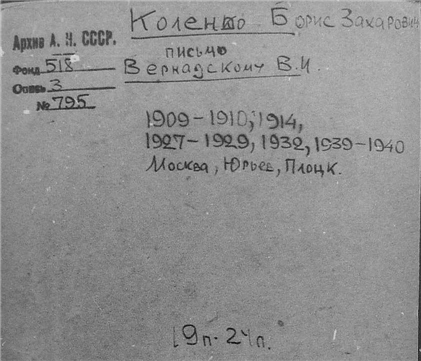 Коленко Борис Захарович
Архив А. Н. СССР.
письмо
Фонд 518
Вернадскому В.И.
Опись 3
№ 795
1909-1910, 1914,
1927-1929, 1932, 1939-1940
Москва, Юрьев, Плоцк.
19п-24п.